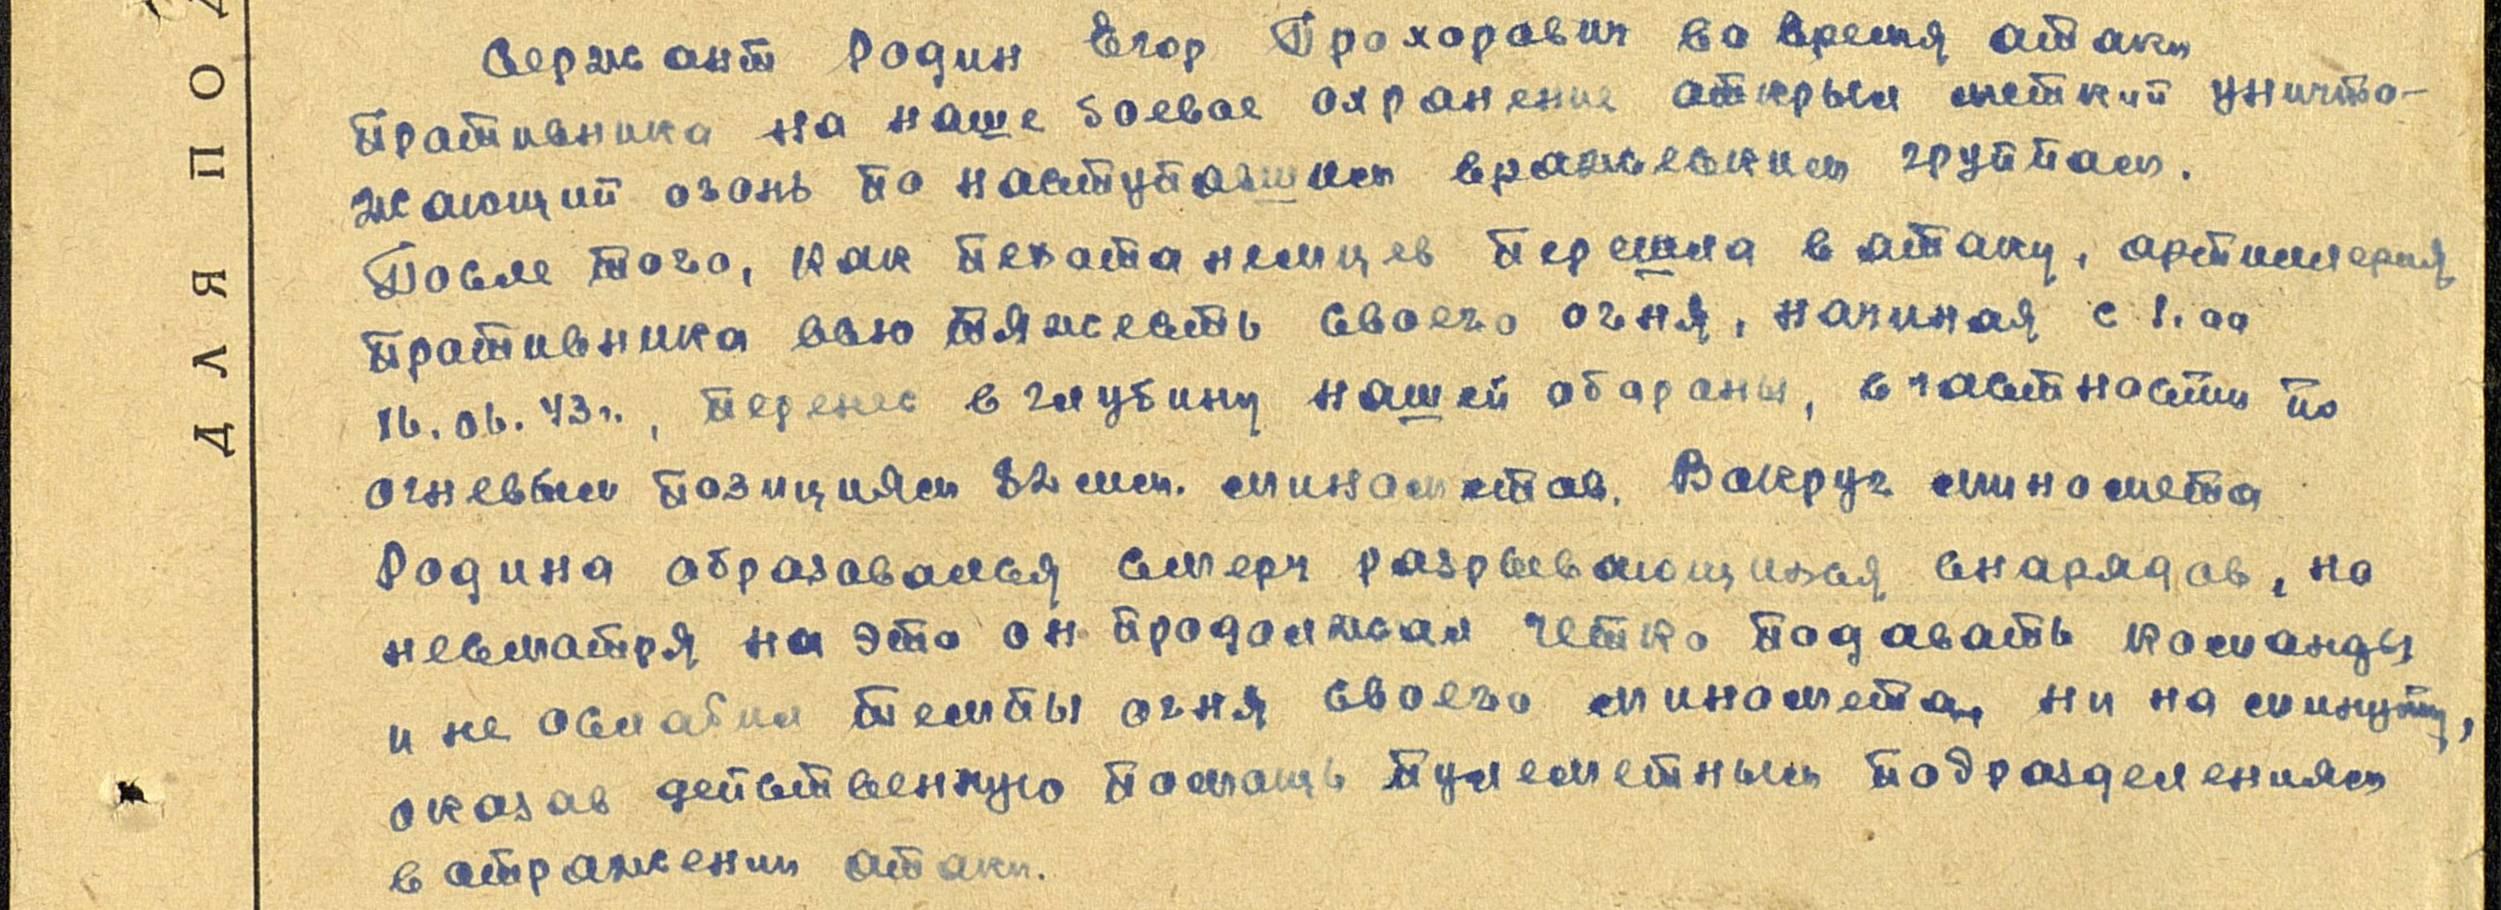 ДЛЯ ПОД
Сержант Родин Егор Прохорович во время атаки
противника на наше боевое охранение открыл меткий уничто-
жающий огонь по наступавшим вражеским группам.
После того, как пехота немцев перешла в атаку, артиллерия
противника всю тяжесть своего огня, начиная с 1.00
16.06.43г., перенес в глубину нашей обороны, в частности по
огневым позициям 82 мм. минометов. Вокруг миномета
Родина образовался смерч разрывающихся снарядов, но
несмотря на это он продолжал четко подавать команды
и не ослабил темпы огня своего миномета, ни на минуту,
оказав действенную помощь пулеметным подразделениям
в отражении атаки.